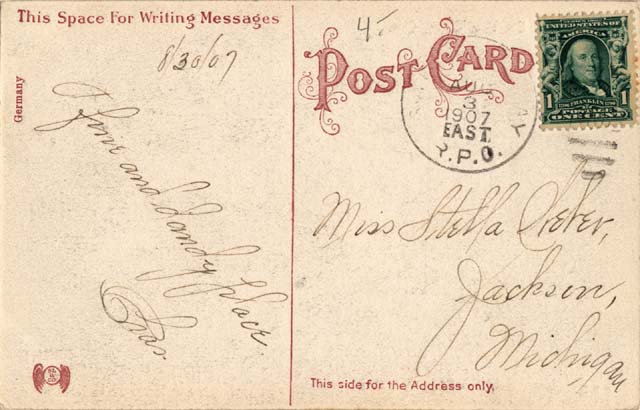 This Space For Writing Messages
8/30/07
Germany
A fine and dandy place
Chas.
4.-
POST CARD
AUG
3
1907
EAST.
R.P.O.
SERIES 1902
UNITED STATES OF
AMERICA
1 FRANKLIN 1
POSTAGE
ONE CENT
Miss Stella
Jackson,
Michigan
This side for the Address only.